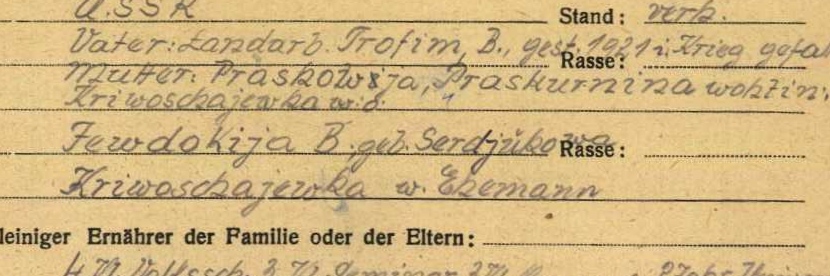 U.S.S.R. Stand: verh.
Vater: Landarb. Trofim, B., gest. 1921 i. Krieg gefal
Rasse:
Mutter: Praskowija, Praskurnina wohlin.
Kriwoschajewka w. o.
Fewdokija B. geb. Serdjukowa Rasse:
Kriwoschajewka w. Ehemann
leiniger Ernährer der Familie oder der Eltern:
4 Kl. Volkssch. 3 Kl. Seminar